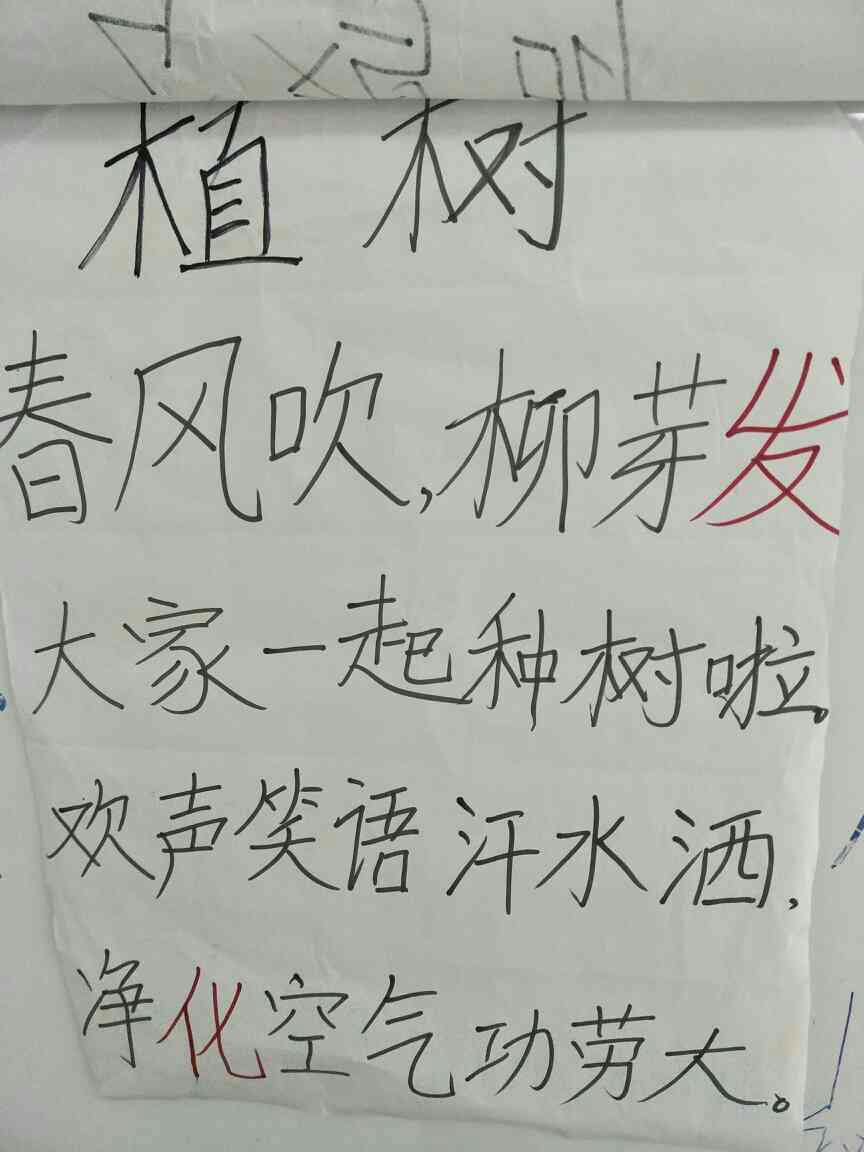 植树
春风吹,柳芽发
大家一起种树啦。
欢声笑语汗水洒,
净化空气功劳大。